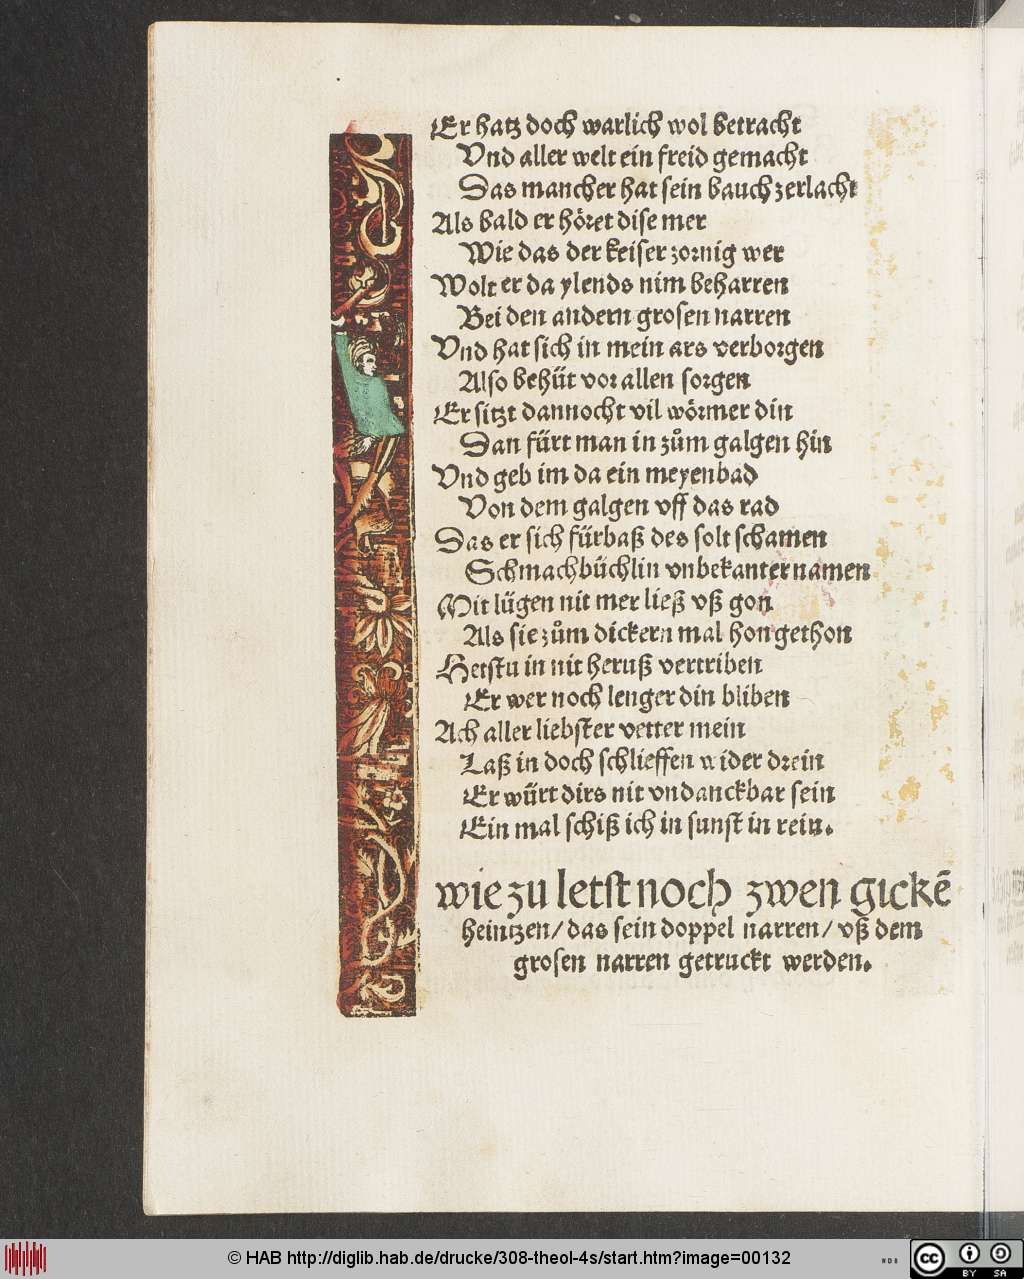 Er hatz doch warlich wol betracht
Vnd aller welt ein freid gemacht
Das mancher hat sein bauch zerlacht
Als bald er höret dise mer
Wie das der keiser zornig wer
Wolt er da ylends nim beharren
Bei den andern grosen narren
Vnd hat sich in mein ars verborgen
Also behüt vor allen sorgen
Er sitzt dannocht vil wörmer din
Dan fürt man in zům galgen hin
Vnd geb im da ein meyenbad
Von dem galgen vff das rad
Das er sich fürbaß des solt schamen
Schmachbüchlin vnbekanter namen
Mit lügen nit mer ließ vß gon
Als sie zům dickern mal hon gethon
Hetstu in nit heruß vertriben
Er wer noch lenger din bliben
Ach aller liebster vetter mein
Laß in doch schlieffen wider drein
Er würt dirs nit vndanckbar sein
Ein mal schiß ich in sunst in rein.
wie zu letst noch zwen gickē
heintzen/ das sein doppel narren/ vß dem
grosen narren getruckt werden.
© HAB http://diglib.hab.de/drucke/308-theol-4s/start.htm?image=00132
WDB
cc
BY SA